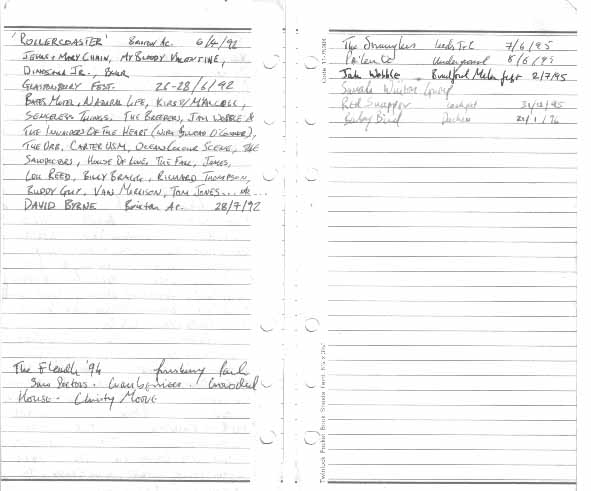 'ROLLERCOASTER' Brixton Ac. 6/4/92
JESUS & MARY CHAIN, MY BLOODY VALENTINE,
DINOSAUR JR., BLUR
GLASTONBURY FEST. 26-28/6/92
BATES MOTEL, NATURAL LIFE, KIRSTY MACCOLL,
SENSELESS THINGS, THE BREEDERS, JAH WOBBLE &
THE INVADERS OF THE HEART (WITH SINEAD O'CONNOR),
THE ORB, CARTER USM, OCEAN COLOUR SCENE, THE
SAWDOCTORS, HOUSE OF LOVE, THE FALL, JAMES,
LOU REED, BILLY BRAGG, RICHARD THOMPSON,
BUDDY GUY, VAN MORRISON, TOM JONES...
DAVID BYRNE Brixton Ac. 28/7/92
The Fleadh '94 Finsbury Park
Saw Doctors. Cranberries. Crowded
House. Christy Moore
The Stranglers Leeds T&C 7/6/95
Underground 8/6/95
Jah Wobble Bradford Mela fest 2/7/95
Red Snapper Cockpit
Baby Bird Duchess
Twinlock Pocket Book Sheets